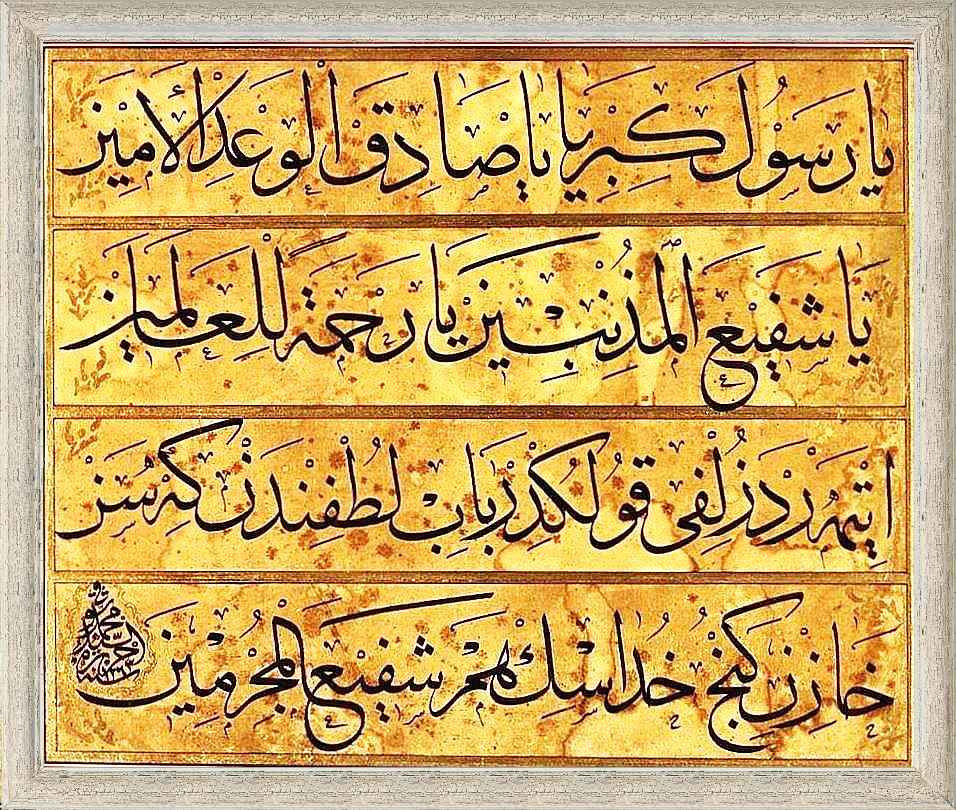 يا رَسُولِ كِبْرِيا يا صَادِقَ الْوَعْدِ الْأَمِين
يَا شَفِيعَ الْمُذْنِبِينَ يَا رَحْمَةً لِلْعَالَمِين
ايتمه رد ذلفي قولكدر باب لطفندن كه سن
خازن كنج خداسك هم شفيع المجرمين